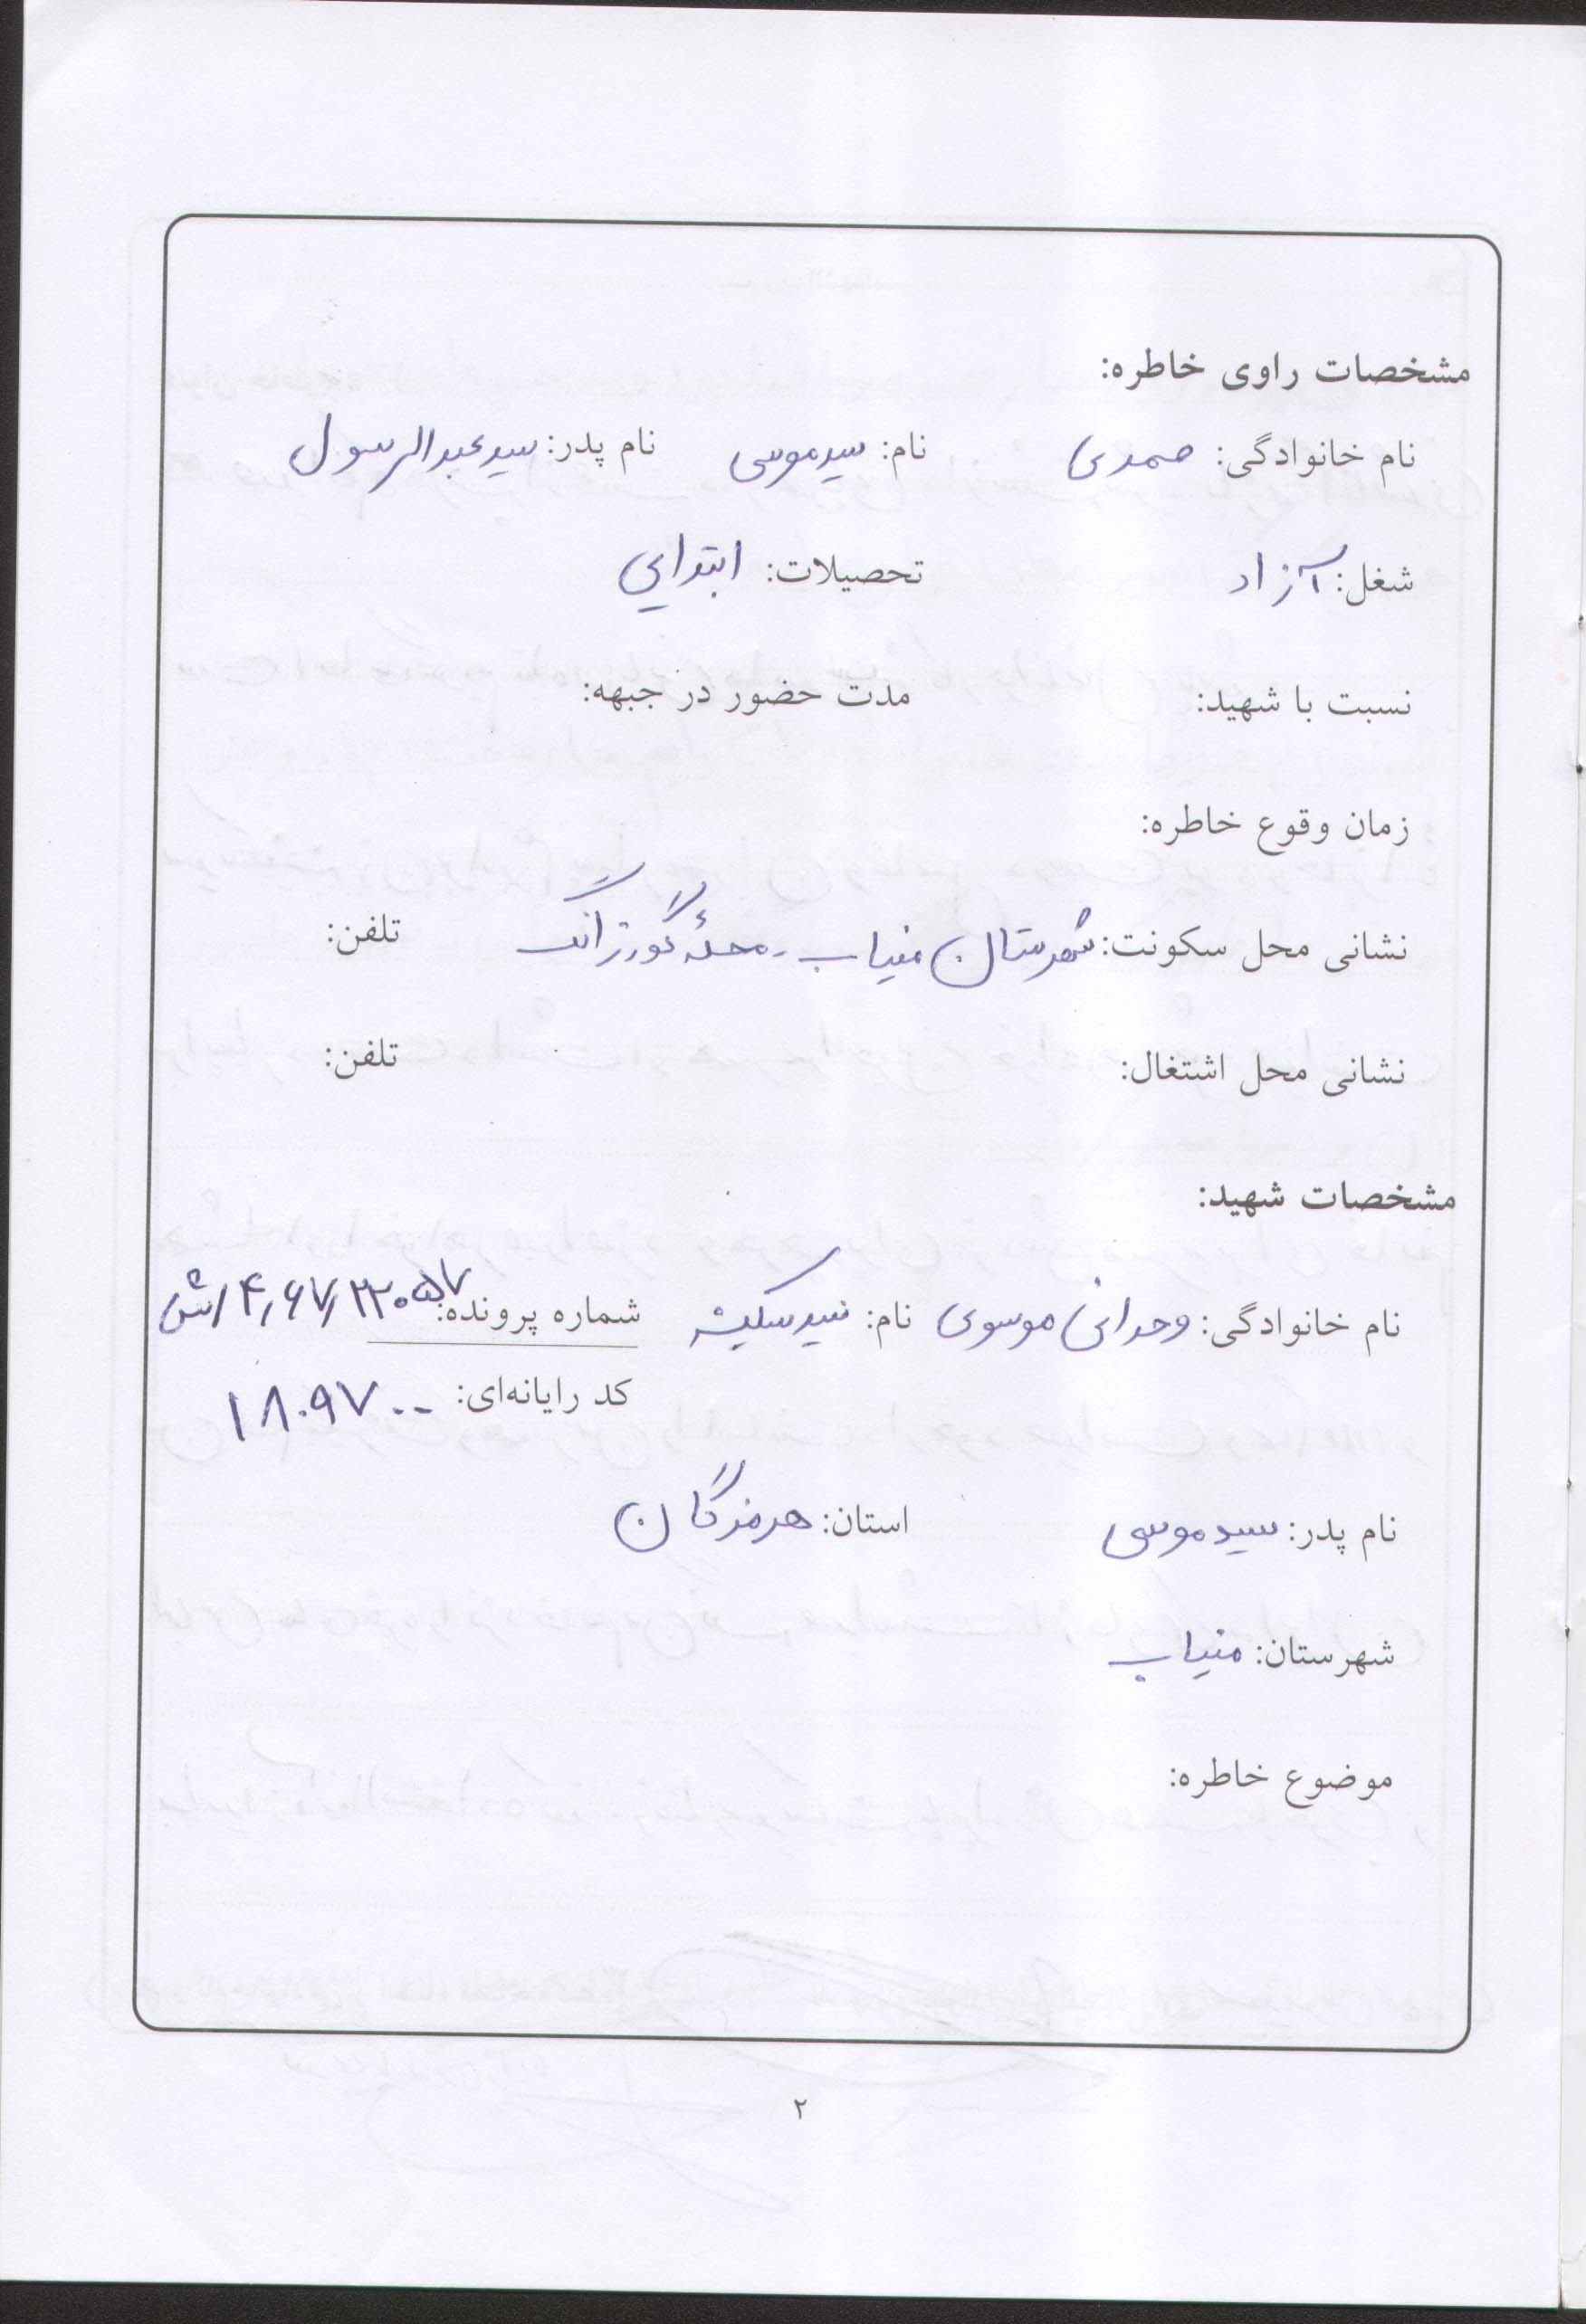 مشخصات راوی خاطره:
نام خانوادگی: صمدی نام: سیدموسی نام پدر: سیدعبدالرسول
شغل: آزاد تحصیلات: ابتدایی
نسبت با شهید: مدت حضور در جبهه:
زمان وقوع خاطره:
نشانی محل سکونت: شهرستان میناب - محلهٔ گورزانگ تلفن:
نشانی محل اشتغال: تلفن:
مشخصات شهید:
نام خانوادگی: وحدانی موسوی نام: سیدسکینه شماره پرونده: ۴٫۶۷٫۲۲۰۵۷/ش
کد رایانه‌ای: ۱۸۰۹۷۰۰
نام پدر: سیدموسی استان: هرمزگان
شهرستان: میناب
موضوع خاطره:
۲